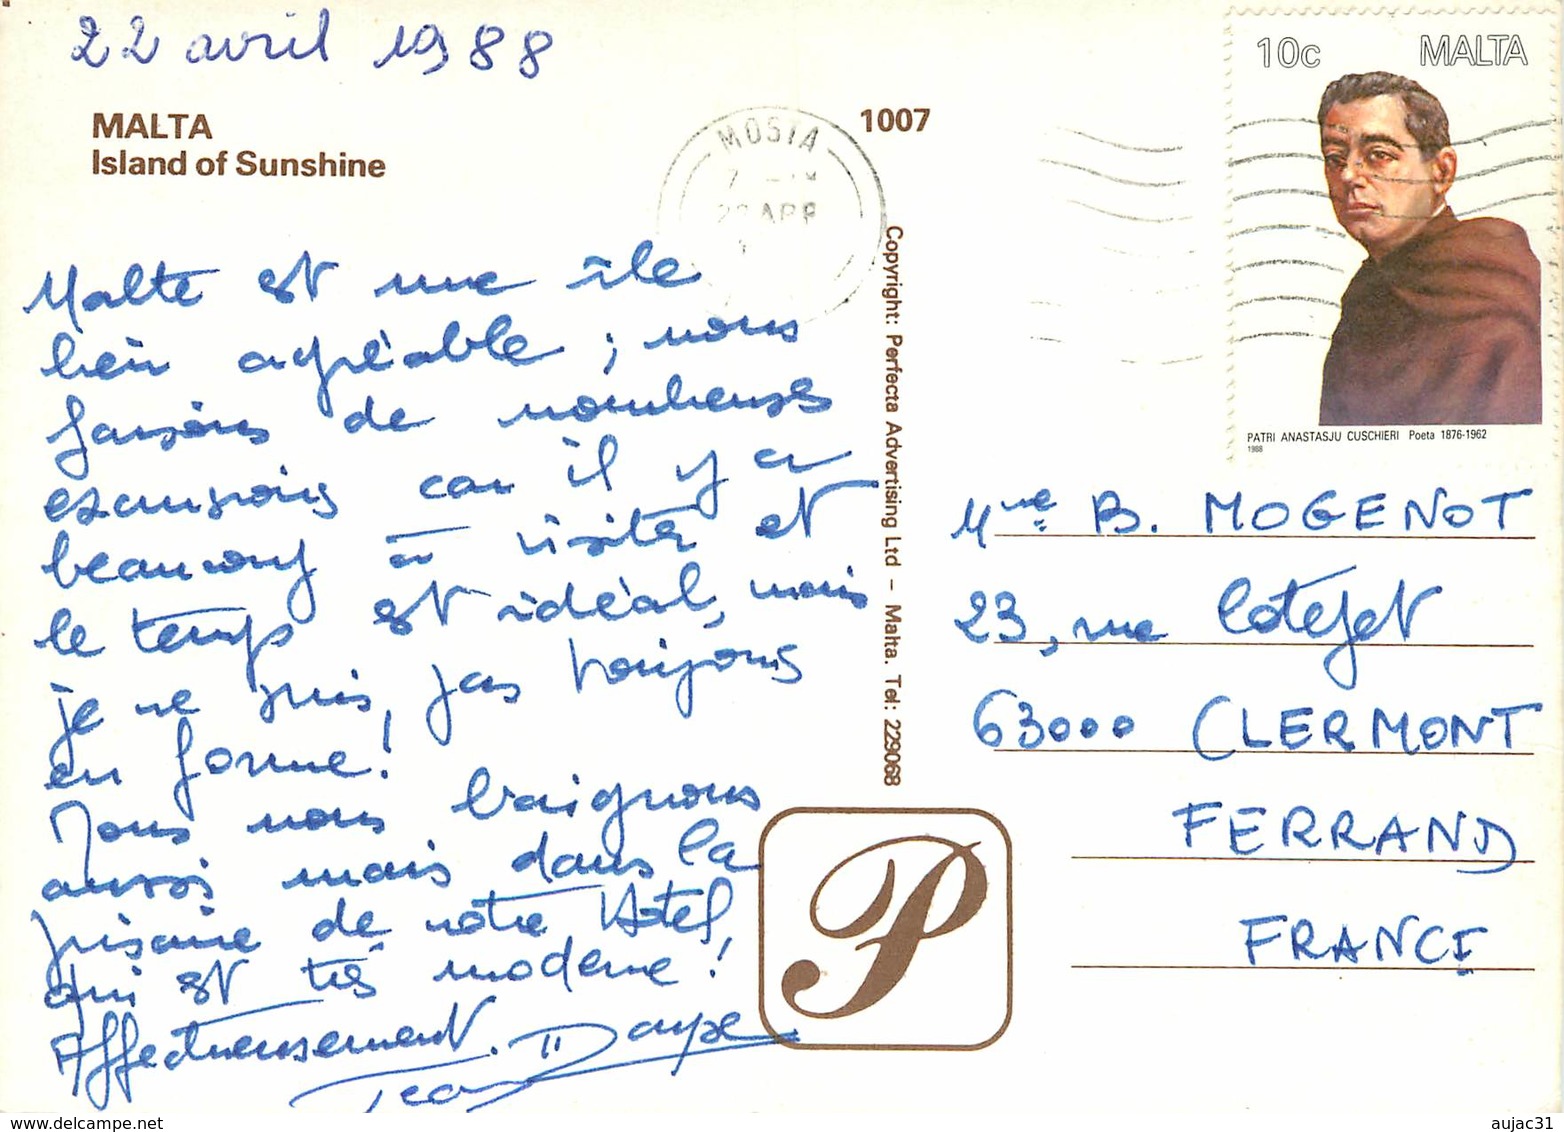 22 avril 1988
MALTA
Island of Sunshine
1007
MOSTA
APR
10c MALTA
PATRI ANASTASJU CUSCHIERI Poeta 1876-1962
1988
Malte est une île
bien agréable ; nous
faisons de nombreuses
excursions car il y a
beaucoup à visiter et
le temps est idéal, mais
je ne suis, pas toujours
en forme!
Nous nous baignons
aussi mais dans la
piscine de notre Hôtel,
qui est très moderne!
Affectueusement.
Jean
Copyright: Perfecta Advertising Ltd – Malta. Tel: 229068
P
Mme B. MOGENOT
23, rue Cotejet
63000 CLERMONT
FERRAND
FRANCE
aujac31